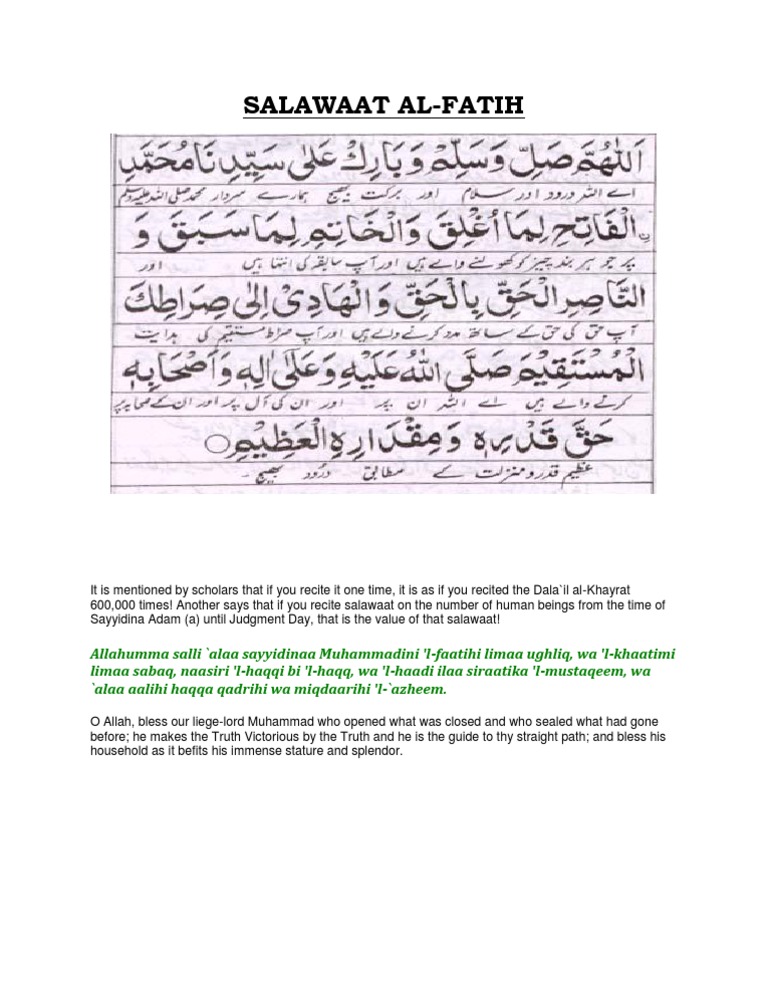 SALAWAAT AL-FATIH
اَللّٰهُمَّ صَلِّ وَسَلِّمْ وَبَارِكْ عَلٰى سَيِّدِنَا مُحَمَّدِ
اے اللہ درود اور سلام اور برکت بھیج ہمارے سردار محمد صلی اللہ علیہ وسلم
نِ الْفَاتِحِ لِمَا اُغْلِقَ وَالْخَاتِمِ لِمَا سَبَقَ وَ
پر جو ہر بند چیز کو کھولنے والے ہیں اور آپ سابقہ کی انتہا ہیں اور
النَّاصِرِ الْحَقِّ بِالْحَقِّ وَالْهَادِىْ اِلٰى صِرَاطِكَ
آپ حق کی حق کے ساتھ مدد کرنے والے ہیں اور آپ صراط مستقیم کی ہدایت
الْمُسْتَقِيْمَ صَلَّى اللهُ عَلَيْهِ وَعَلٰى اٰلِهٖ وَاَصْحَابِهٖ
کرنے والے ہیں اے اللہ ان پر اور ان کی آل پر اور ان کے صحابہ پر
حَقَّ قَدْرِهٖ وَمِقْدَارِهِ الْعَظِيْمِ
عظیم قدر و منزلت کے مطابق درود بھیج -
It is mentioned by scholars that if you recite it one time, it is as if you recited the Dala`il al-Khayrat
600,000 times! Another says that if you recite salawaat on the number of human beings from the time of
Sayyidina Adam (a) until Judgment Day, that is the value of that salawaat!
Allahumma salli `alaa sayyidinaa Muhammadini 'l-faatihi limaa ughliq, wa 'l-khaatimi
limaa sabaq, naasiri 'l-haqqi bi 'l-haqq, wa 'l-haadi ilaa siraatika 'l-mustaqeem, wa
`alaa aalihi haqqa qadrihi wa miqdaarihi 'l-`azheem.
O Allah, bless our liege-lord Muhammad who opened what was closed and who sealed what had gone
before; he makes the Truth Victorious by the Truth and he is the guide to thy straight path; and bless his
household as it befits his immense stature and splendor.